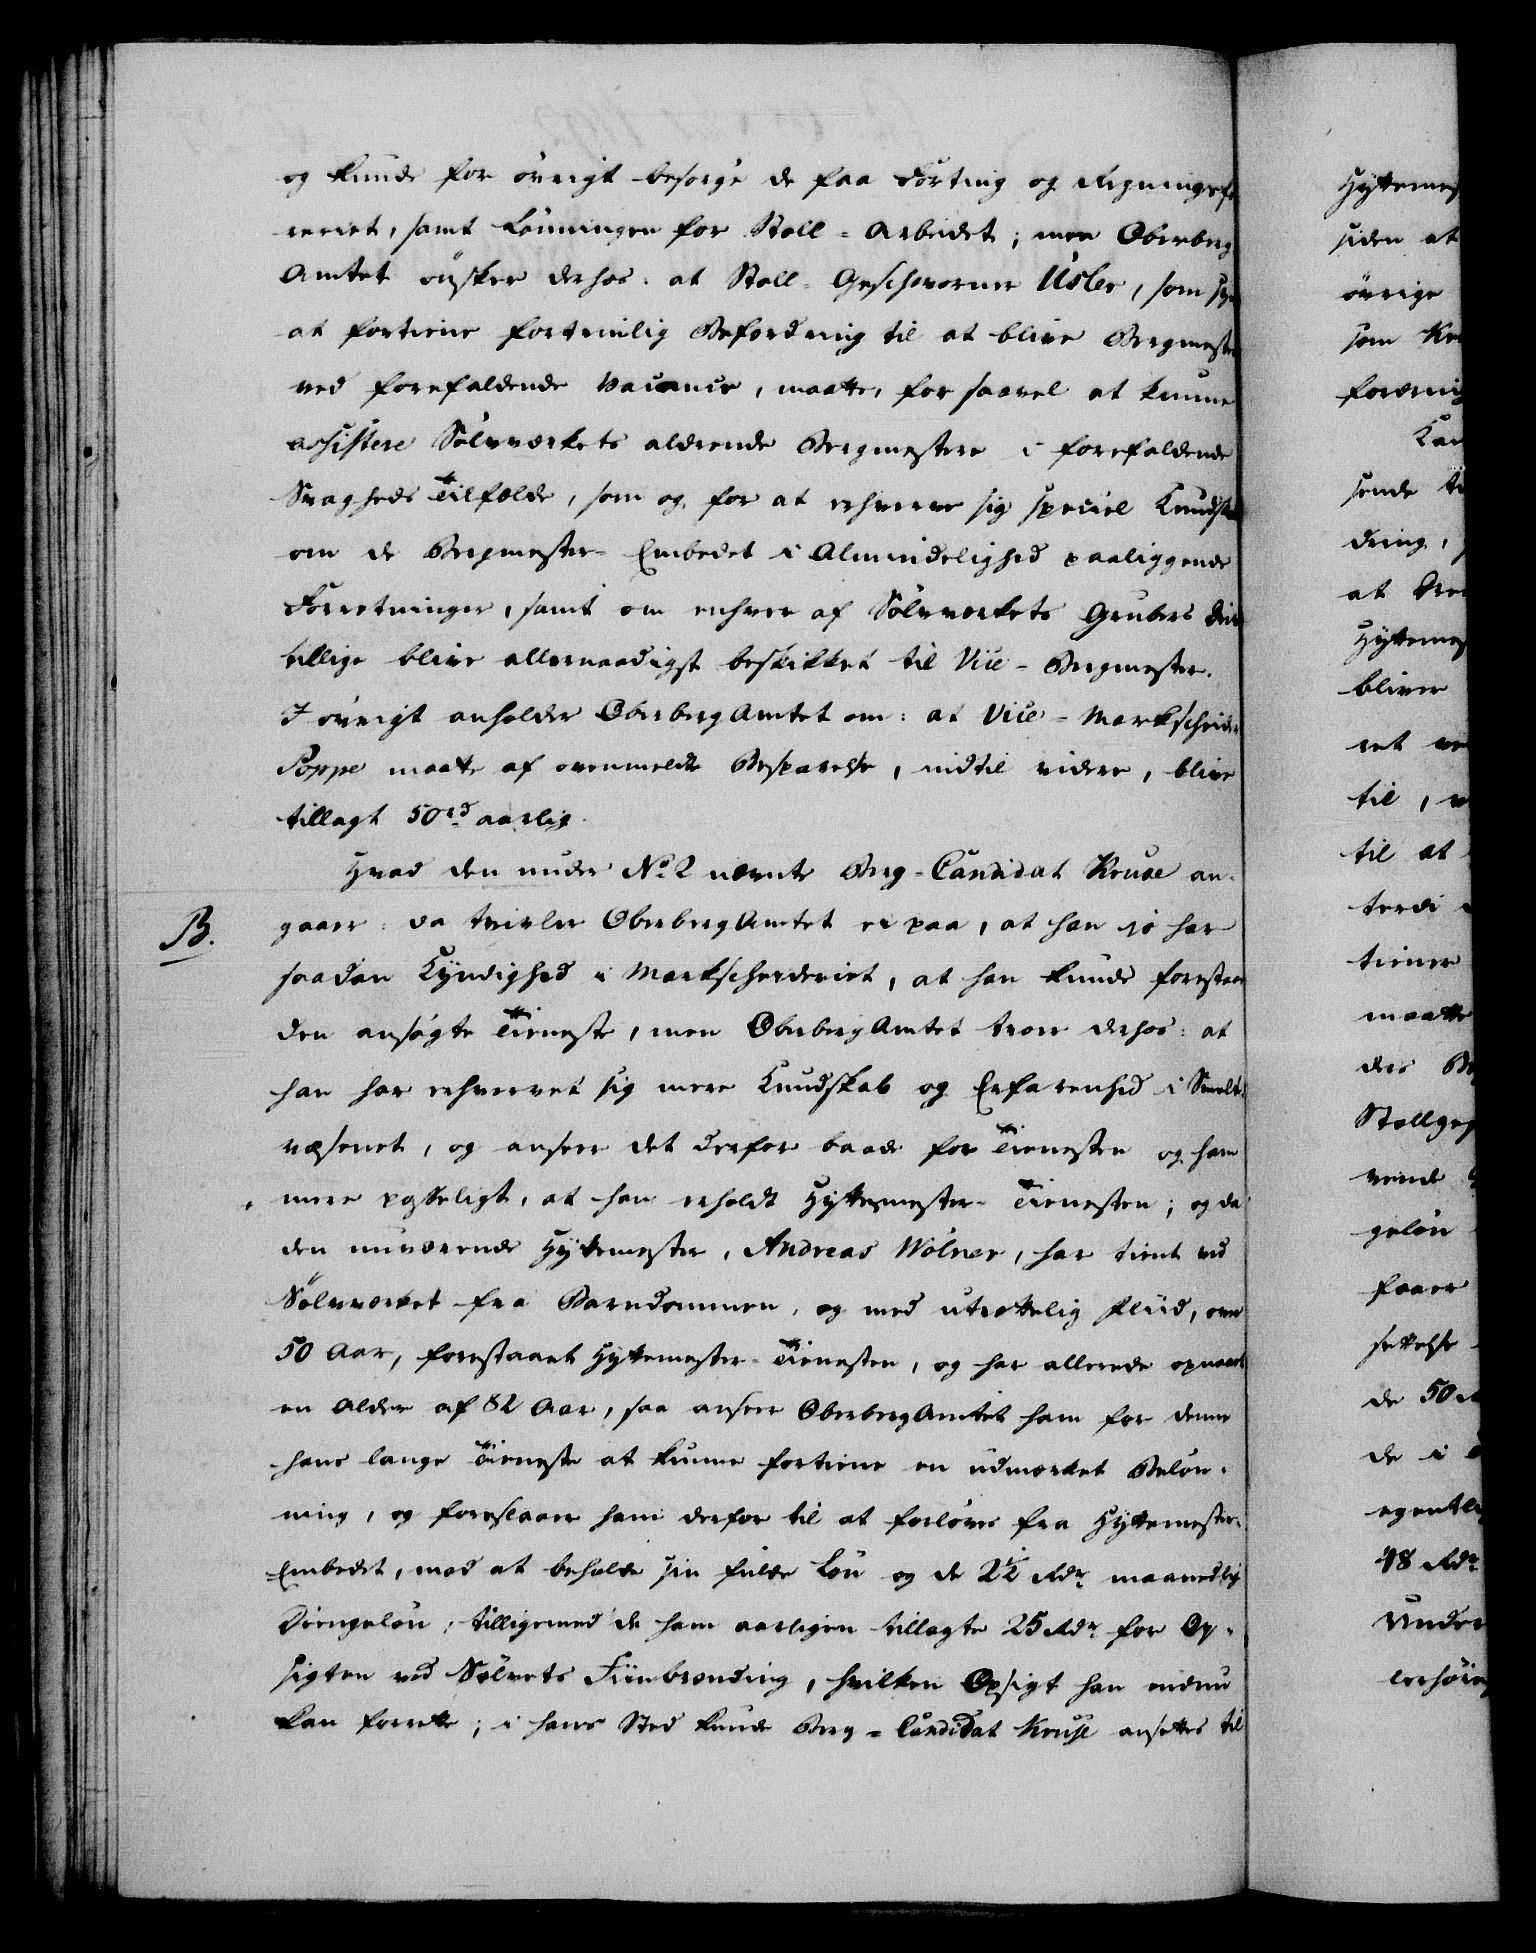 og kunde for øvrigt besørge de faa Førting og Regningsfø
reriet, samt Lønningen for Stoll-Arbeidet; men Oberberg
Amtet ønsker derhos: at Stoll-Geschworner Usler, som syn
at fortiene fortrinlig Befordring til at blive Bergmester
ved forefaldende Vacance, maatte, for saavel at kunne
assistere Sølvværkets aldrende Bergmestere i forefaldende
Svagheds Tilfælde, som og for at erhverve sig speciel Kundskab
om de Bergmester-Embedet i Almindelighed paaliggende
Forretninger, samt om enhver af Sølvværkets Grubers Drivt
tillige blive allernaadigst beskikket til Vice-Bergmester.
I øvrigt anholder OberbergAmtet om: at Vice-Markscheider
Poppe maatte af ovenmeldte Besparelse, indtil videre, blive
tillagt 50 rd aarlig.
Hvad den under No 2 nævnte Berg-Candidat Kruse an-
B.
gaaer: da tvivler OberbergAmtet ei paa, at han jo har
saadan Kyndighed i Markscheideriet, at han kunde forestaae
den ansøgte Tieneste, men OberbergAmtet troer derhos: at
han har erhvervet sig mere Kundskab og Erfarenhed i Smelte-
væsenet, og anseer det derfor baade for Tienesten og ham
mere passeligt, at han erholdt Hyttemester-Tienesten; og da
den nuværende Hyttemester, Andreas Wølner, har tient ved
Sølvværket fra Barndommen, og med utrættelig Fliid, over
50 Aar, forestaaet Hyttemester-Tienesten, og har allerede opnaaet
en Alder af 82 Aar, saa anseer OberbergAmtet ham for denne
hans lange Tieneste at kunne fortiene en udmærket Beløn-
ning, og foreslaaer ham derfor til at forløves fra Hyttemester-
Embedet, mod at beholde sin fulde Løn og de 2½ Rdr maanedlig
Drengeløn, tilligemed de ham aarligen tillagte 25 Rdr for Op-
sigten ved Sølvets Fiinbrænding, hvilken Opsigt han endnu
kan forrette; i hans Sted kunde Berg-Candidat Kruse ansættes til
Hyttemes
siden at
øvrige
som Kr
forærnig
Kan
sende ti
dring,
at
Hyttemes
bliver
ret ve
til, v
til at
terdi
tiener
maatte
des
Stollges
vende
geløn
faaer
settelse
de 50
de i
egentli
48 Rdr
Under
lerhøie